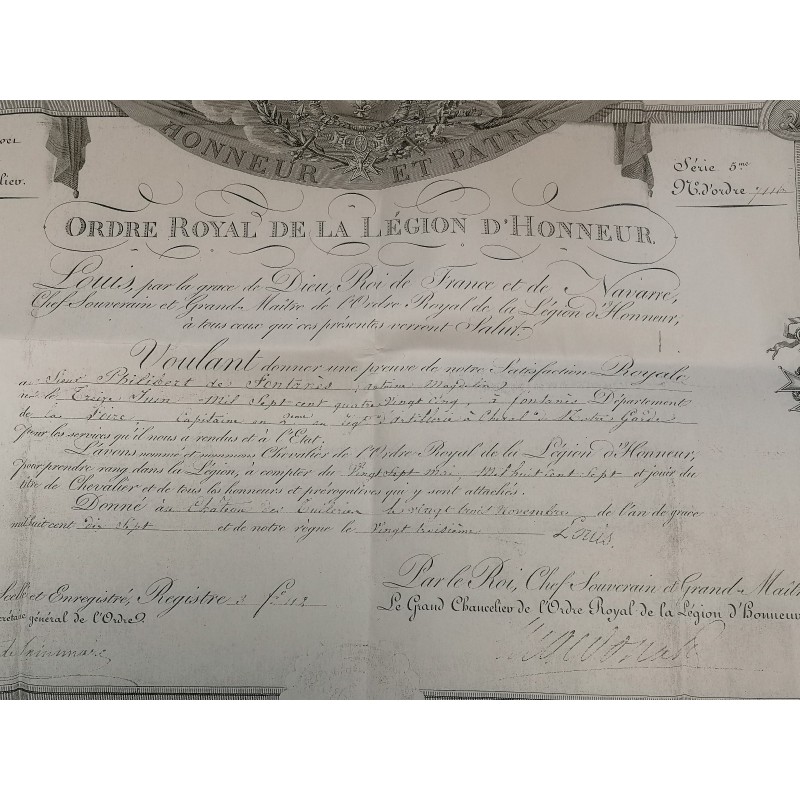 HONNEUR ET PATRIE
Série 5me
N.º d'ordre
ORDRE ROYAL DE LA LÉGION D'HONNEUR.
Louis, par la grace de Dieu, Roi de France et de Navarre,
Chef Souverain et Grand-Maître de l'Ordre Royal de la Légion d'Honneur,
à tous ceux qui ces présentes verront Salut.
Voulant donner une preuve de notre Satisfaction Royale
a Sieur Philibert de Fontanès
né le Treize Juin Mil Sept cent quatre vingt cinq, à fontanès Département
de la Loire Capitaine au 2eme d'artillerie à Cheval Notre Garde
pour les services qu'il nous a rendus et à l'Etat.
L'avons nommé et nommons Chevalier de l'Ordre Royal de la Légion d'Honneur,
pour prendre rang dans la Légion, à compter du Vingt sept mai, Mil huit cent sept et jouir du
titre de Chevalier et de tous les honneurs et prérogatives qui y sont attachés.
Donné au Château des Tuileries le vingt trois Novembre de l'an de grace
mil huit cent dix Sept et de notre règne le Vingt troisième Louis.
Scellé et Enregistré, Registre 3 fo 112
Secrétaire général de l'Ordre.
Par le Roi, Chef Souverain et Grand-Maître
Le Grand Chancelier de l'Ordre Royal de la Légion d'Honneur